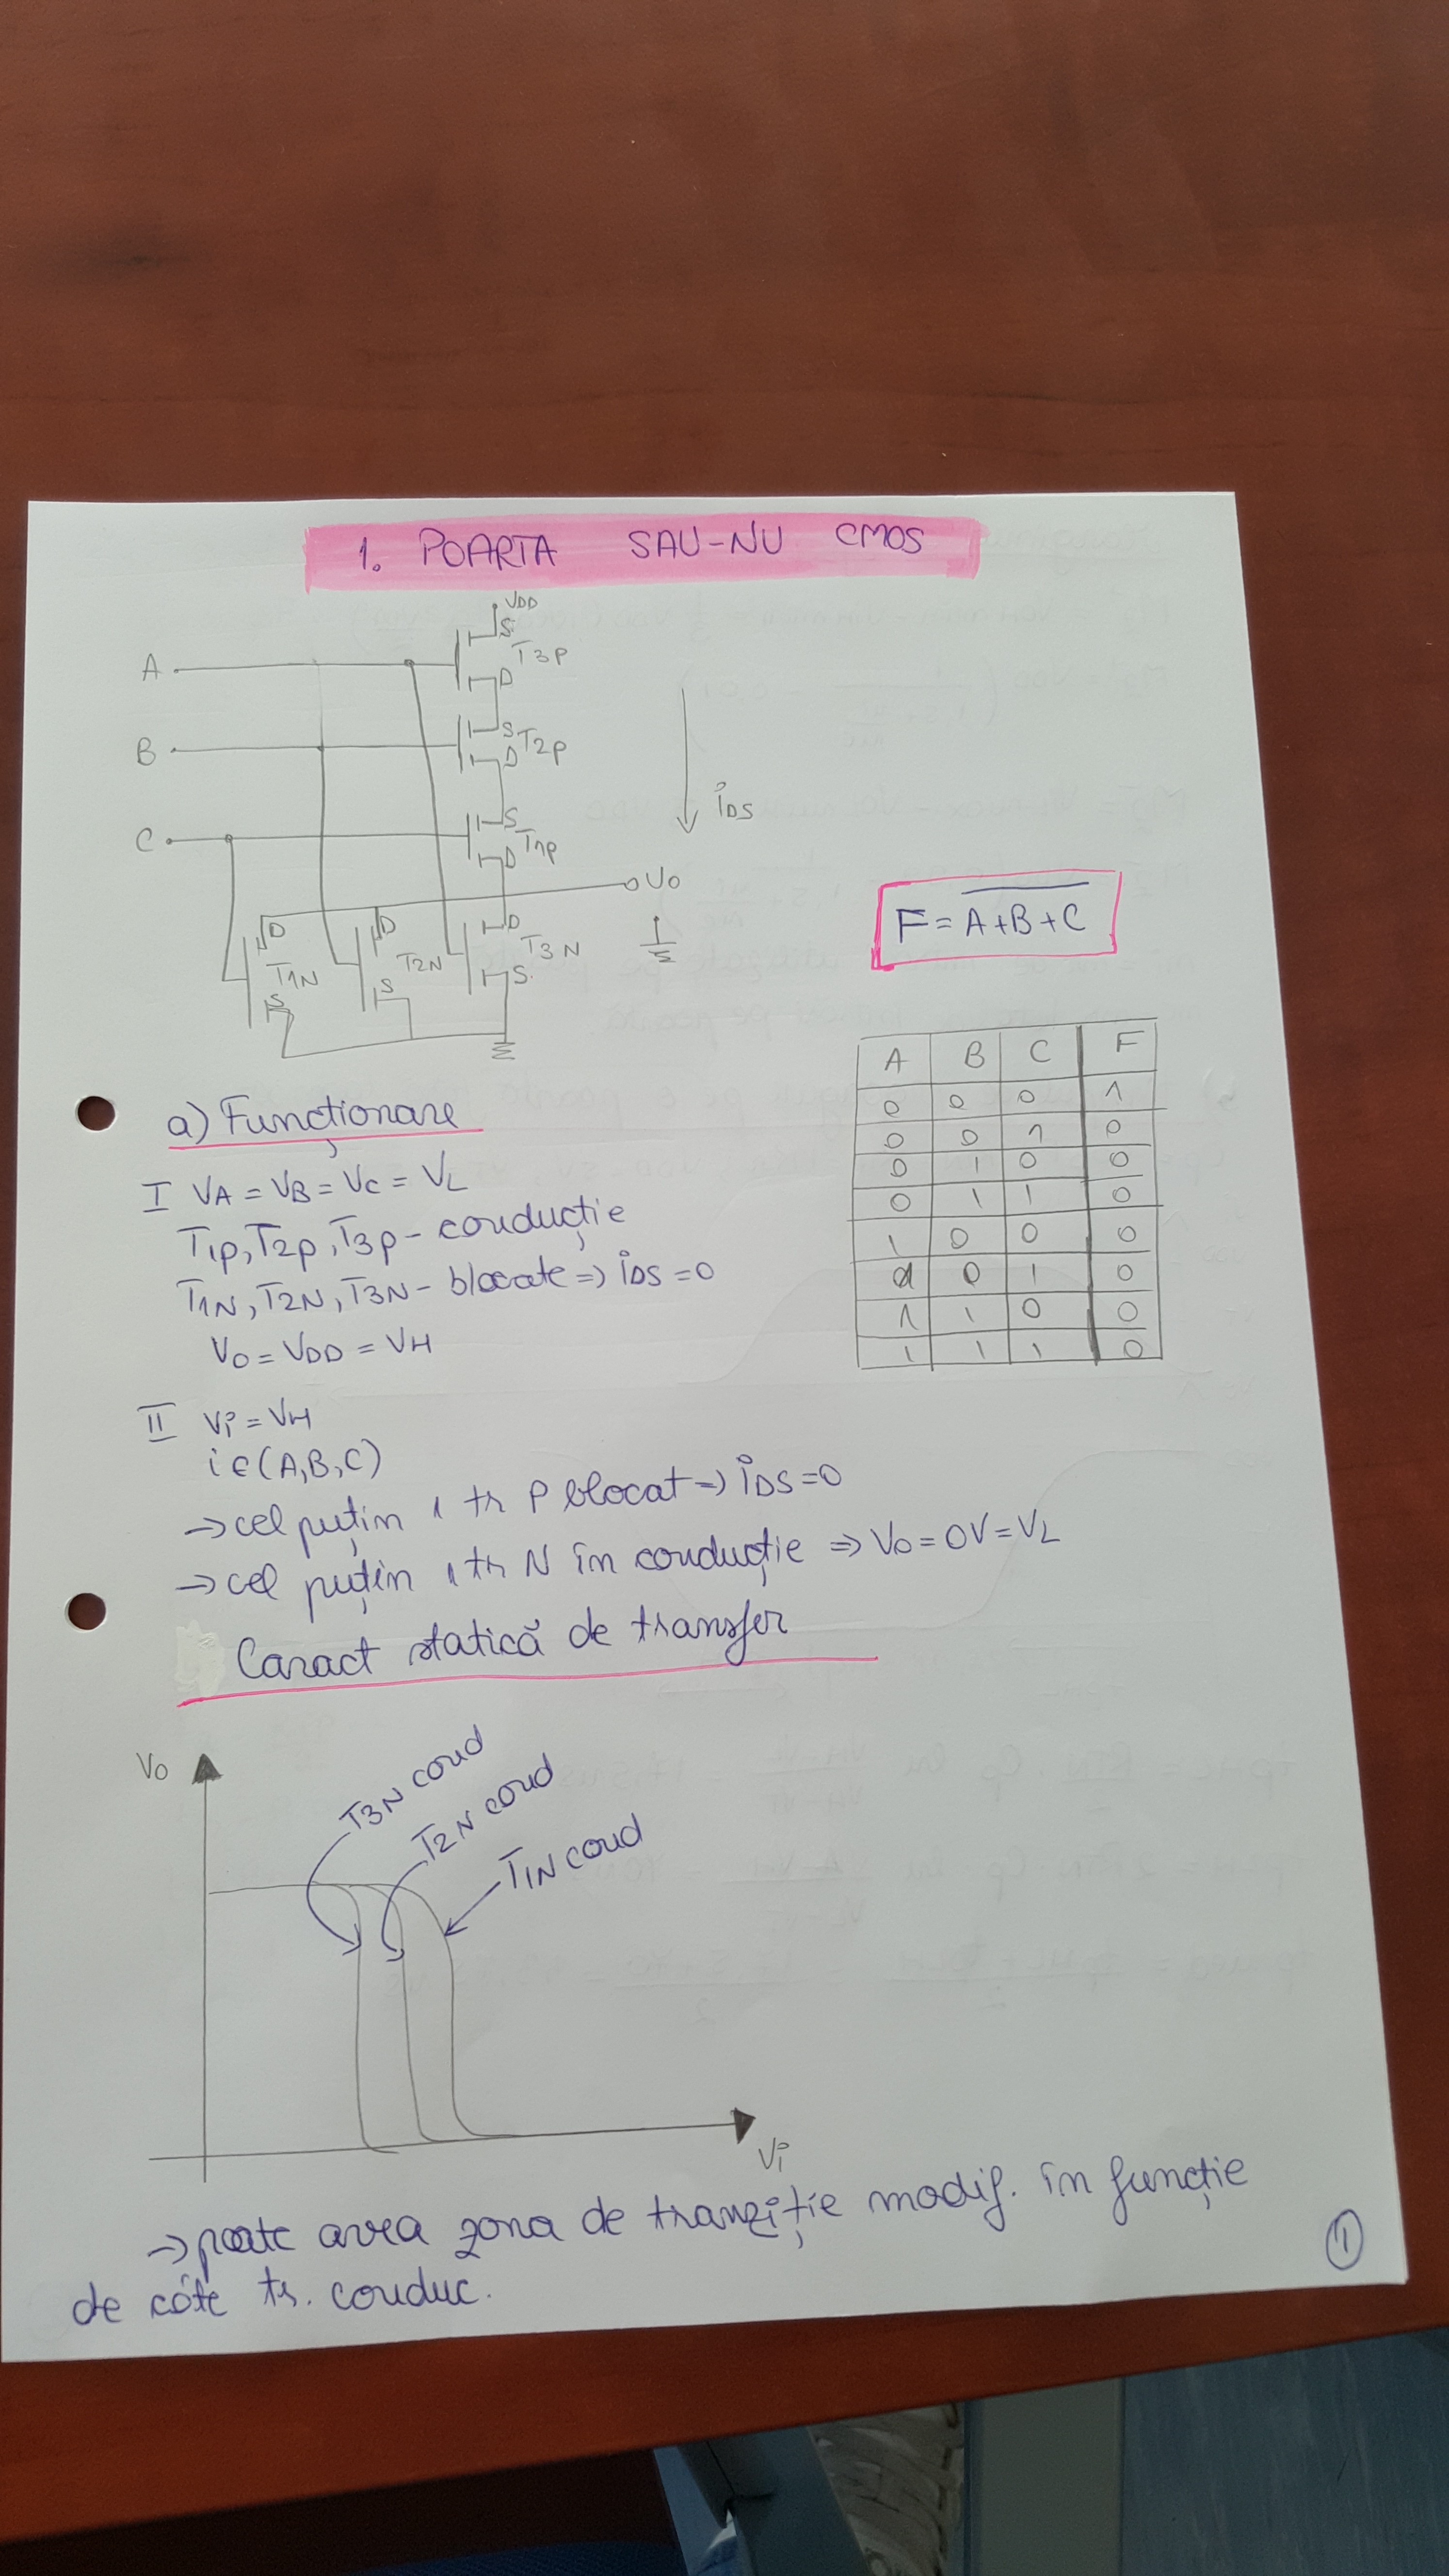 1. POARTA SAU-NU CMOS
VDD
S
T3P
A
D
S
T2P
B
D
iDS
S
C
T1P
D
V0
D
D
D
T3N
T2N
T1N
S
S
S
F = \overline{A+B+C}
A B C F
0 0 0 1
0 0 1 0
0 1 0 0
0 1 1 0
1 0 0 0
1 0 1 0
1 1 0 0
1 1 1 0
a) Funcționare
I VA = VB = VC = VL
T1P, T2P, T3P - conducție
T1N, T2N, T3N - blocate => iDS = 0
V0 = VDD = VH
II Vi = VH
i ∈ (A, B, C)
→ cel puțin 1 tr P blocat => iDS = 0
→ cel puțin 1 tr N în conducție => V0 = 0V = VL
Caract statică de transfer
V0
T3N cond
T2N cond
T1N cond
Vi
→ poate avea zona de tranziție modif. în funcție
de câte tr. conduc.
1